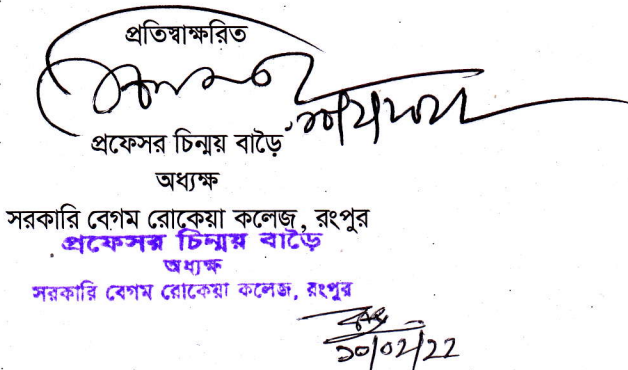 প্রতিস্বাক্ষরিত
প্রফেসর চিন্ময় বাড়ৈ
অধ্যক্ষ
সরকারি বেগম রোকেয়া কলেজ, রংপুর
প্রফেসর চিন্ময় বাড়ৈ
অধ্যক্ষ
সরকারি বেগম রোকেয়া কলেজ, রংপুর
১০/০২/২২